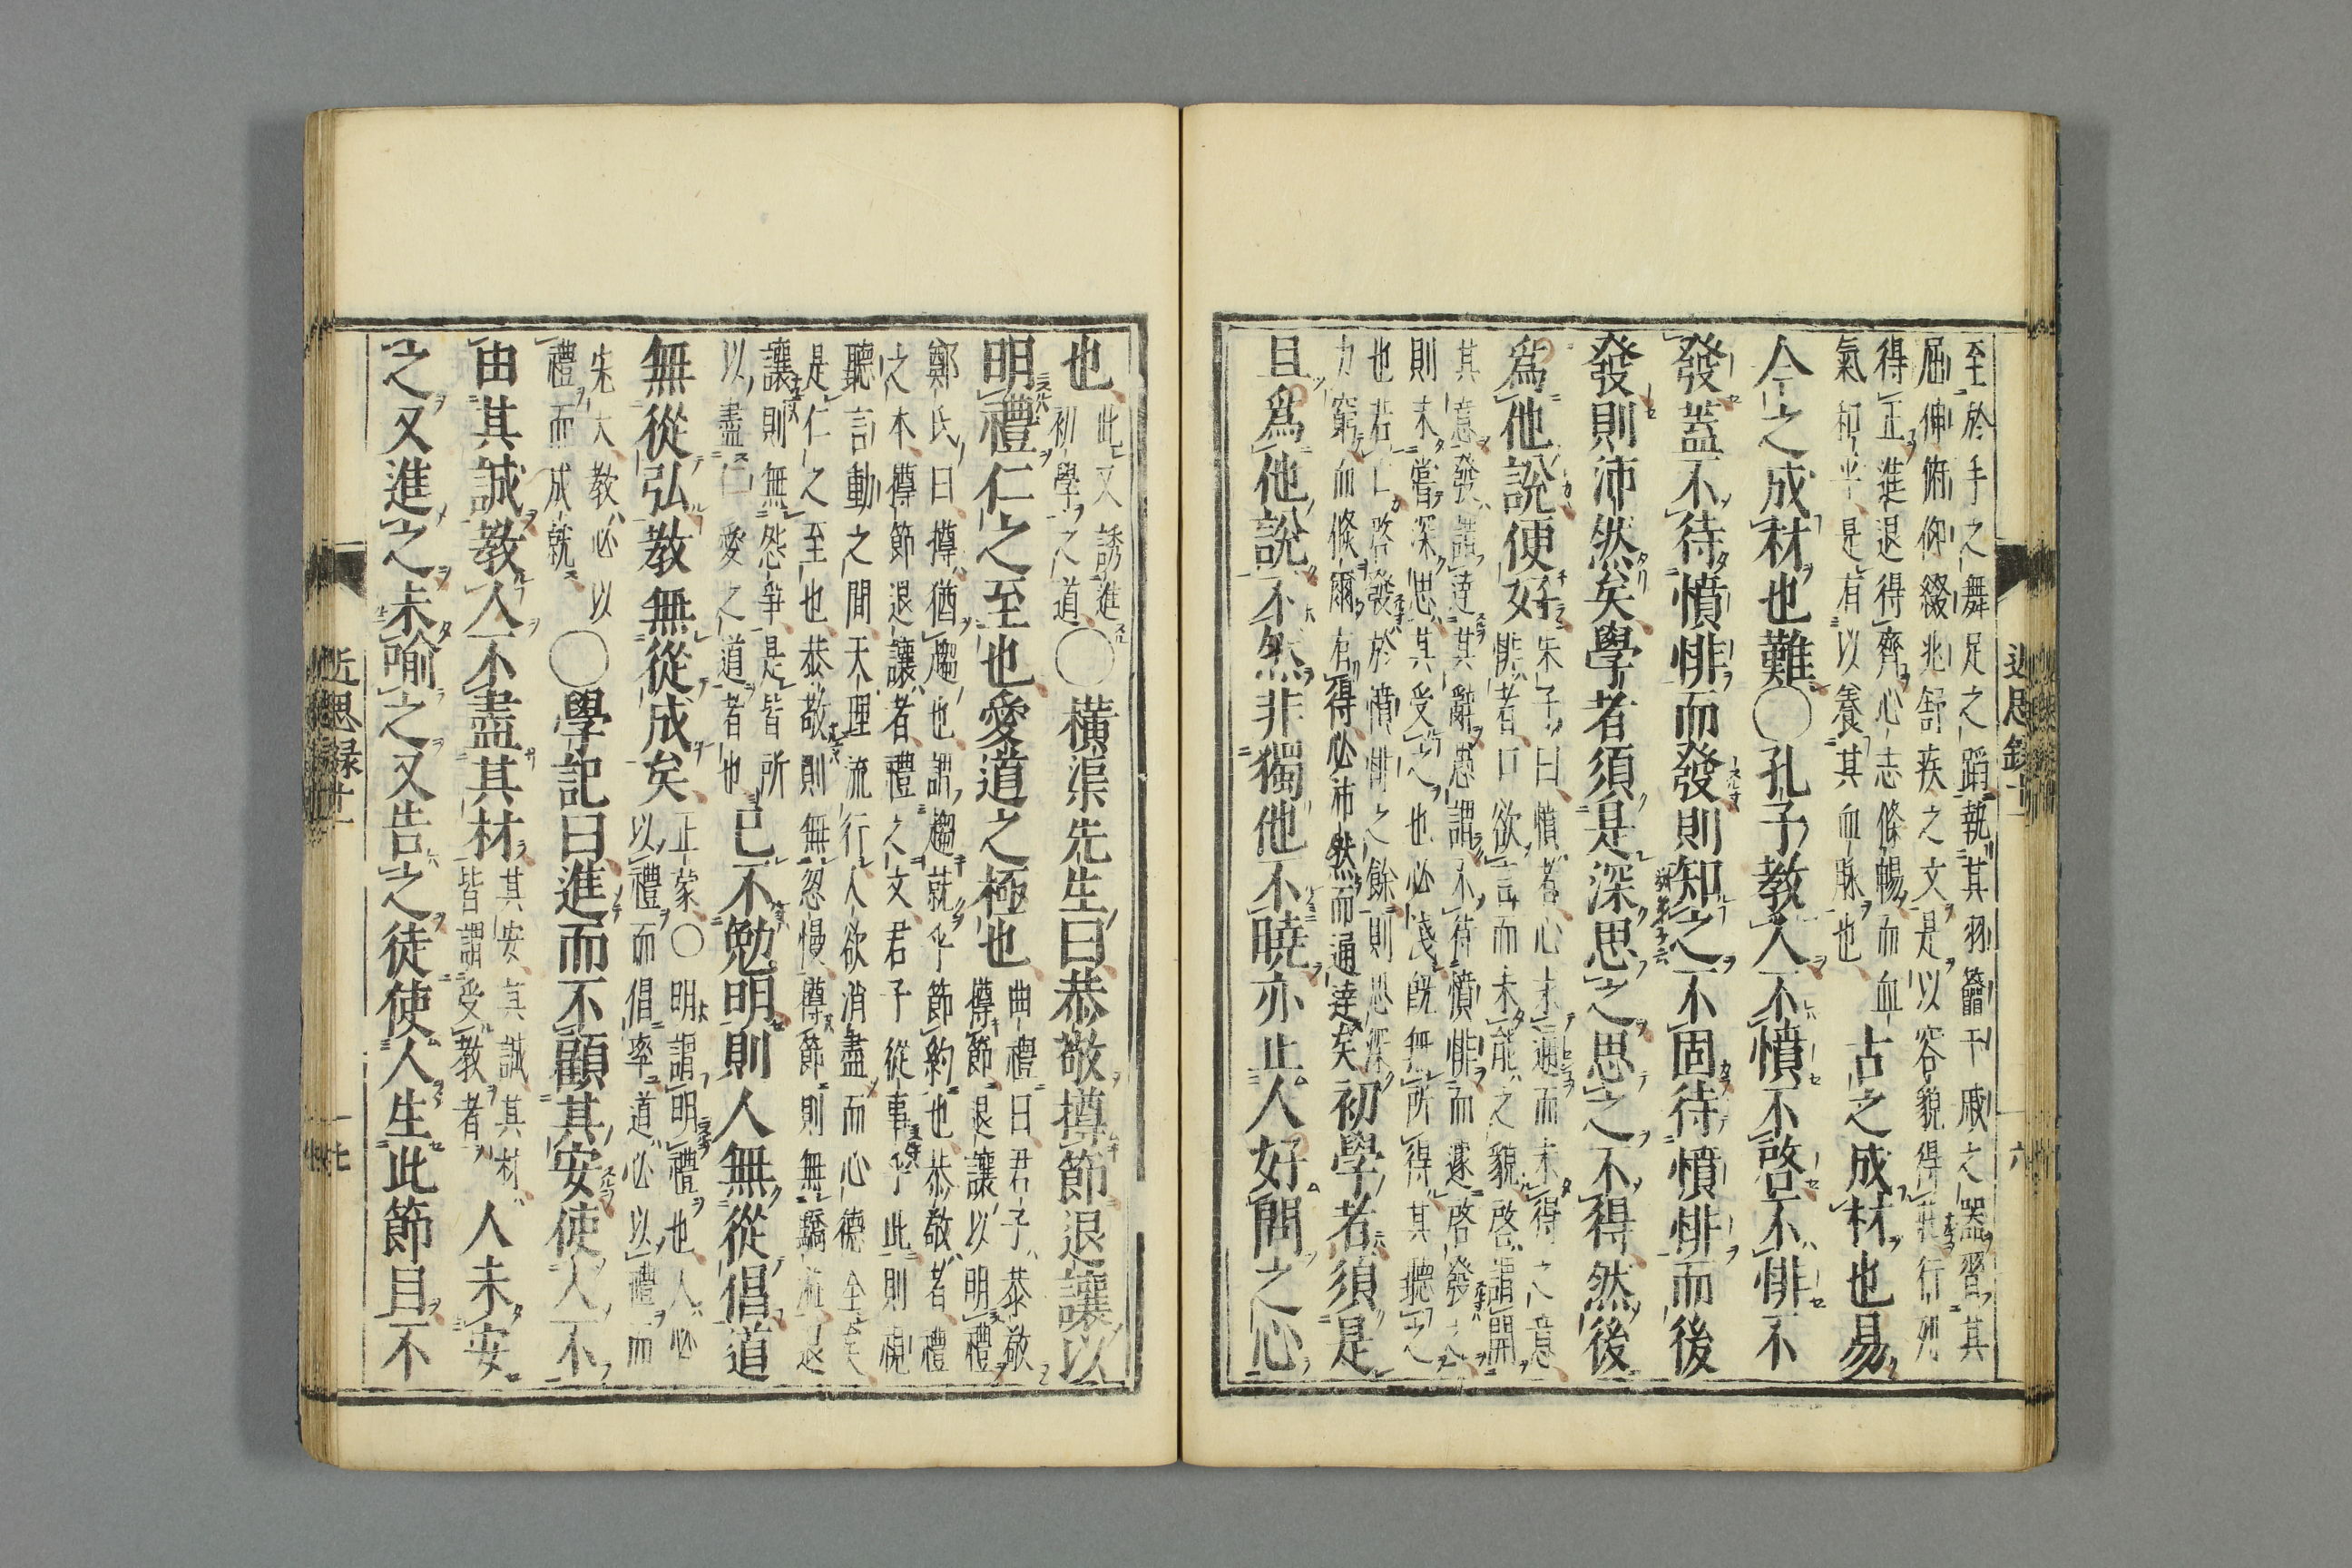 至於手之舞足之蹈執其羽籥干戚之器習其
屈伸俯仰綴兆舒疾之文是以容貌得莊行列
得正進退得齊心志條暢而血
氣和平是有以養其血脉也
古之成材也易
今之成材也難〇孔子教人不憤不啓不悱不
發蓋不待憤悱而發則知之不固待憤悱而後
發則沛然矣學者須是深思之思之不得然後
爲他說便好
朱子曰憤者心求通而未得之意
悱者口欲言而未能之貌啓謂開
其意發謂達其辭愚謂不待憤悱而遽啓發之
則未嘗深思其受之也必淺既無所得其聽之
也若亡啓發於憤悱之餘則思深
力窮而倐爾有得必沛然而通達矣
初學者須是
且爲他說不然非獨他不曉亦止人好問之心
也
此又誘進
初學之道
〇橫渠先生曰恭敬撙節退讓以
明禮仁之至也愛道之極也
曲禮曰君子恭敬
撙節退讓以明禮
鄭氏曰撙猶趨也謂趨就乎節約也恭敬者禮
之本撙節退讓者禮之文君子從事乎此則視
聽言動之間天理流行人欲消盡而心德全矣
是仁之至也恭敬則無忽慢撙節則無驕溢退
讓則無怨爭是皆所
以盡仁愛之道者也
己不勉明則人無從倡道
無從弘教無從成矣
正蒙〇明謂明禮也人必
以禮而倡率道必以禮而
朱大教必以
禮而成就
〇學記曰進而不顧其安使人不
由其誠教人不盡其材
其安其誠其材
皆謂受教者
人未安
之又進之未喻之又告之徒使人生此節目不
近思録十一
六
近思録十一
七